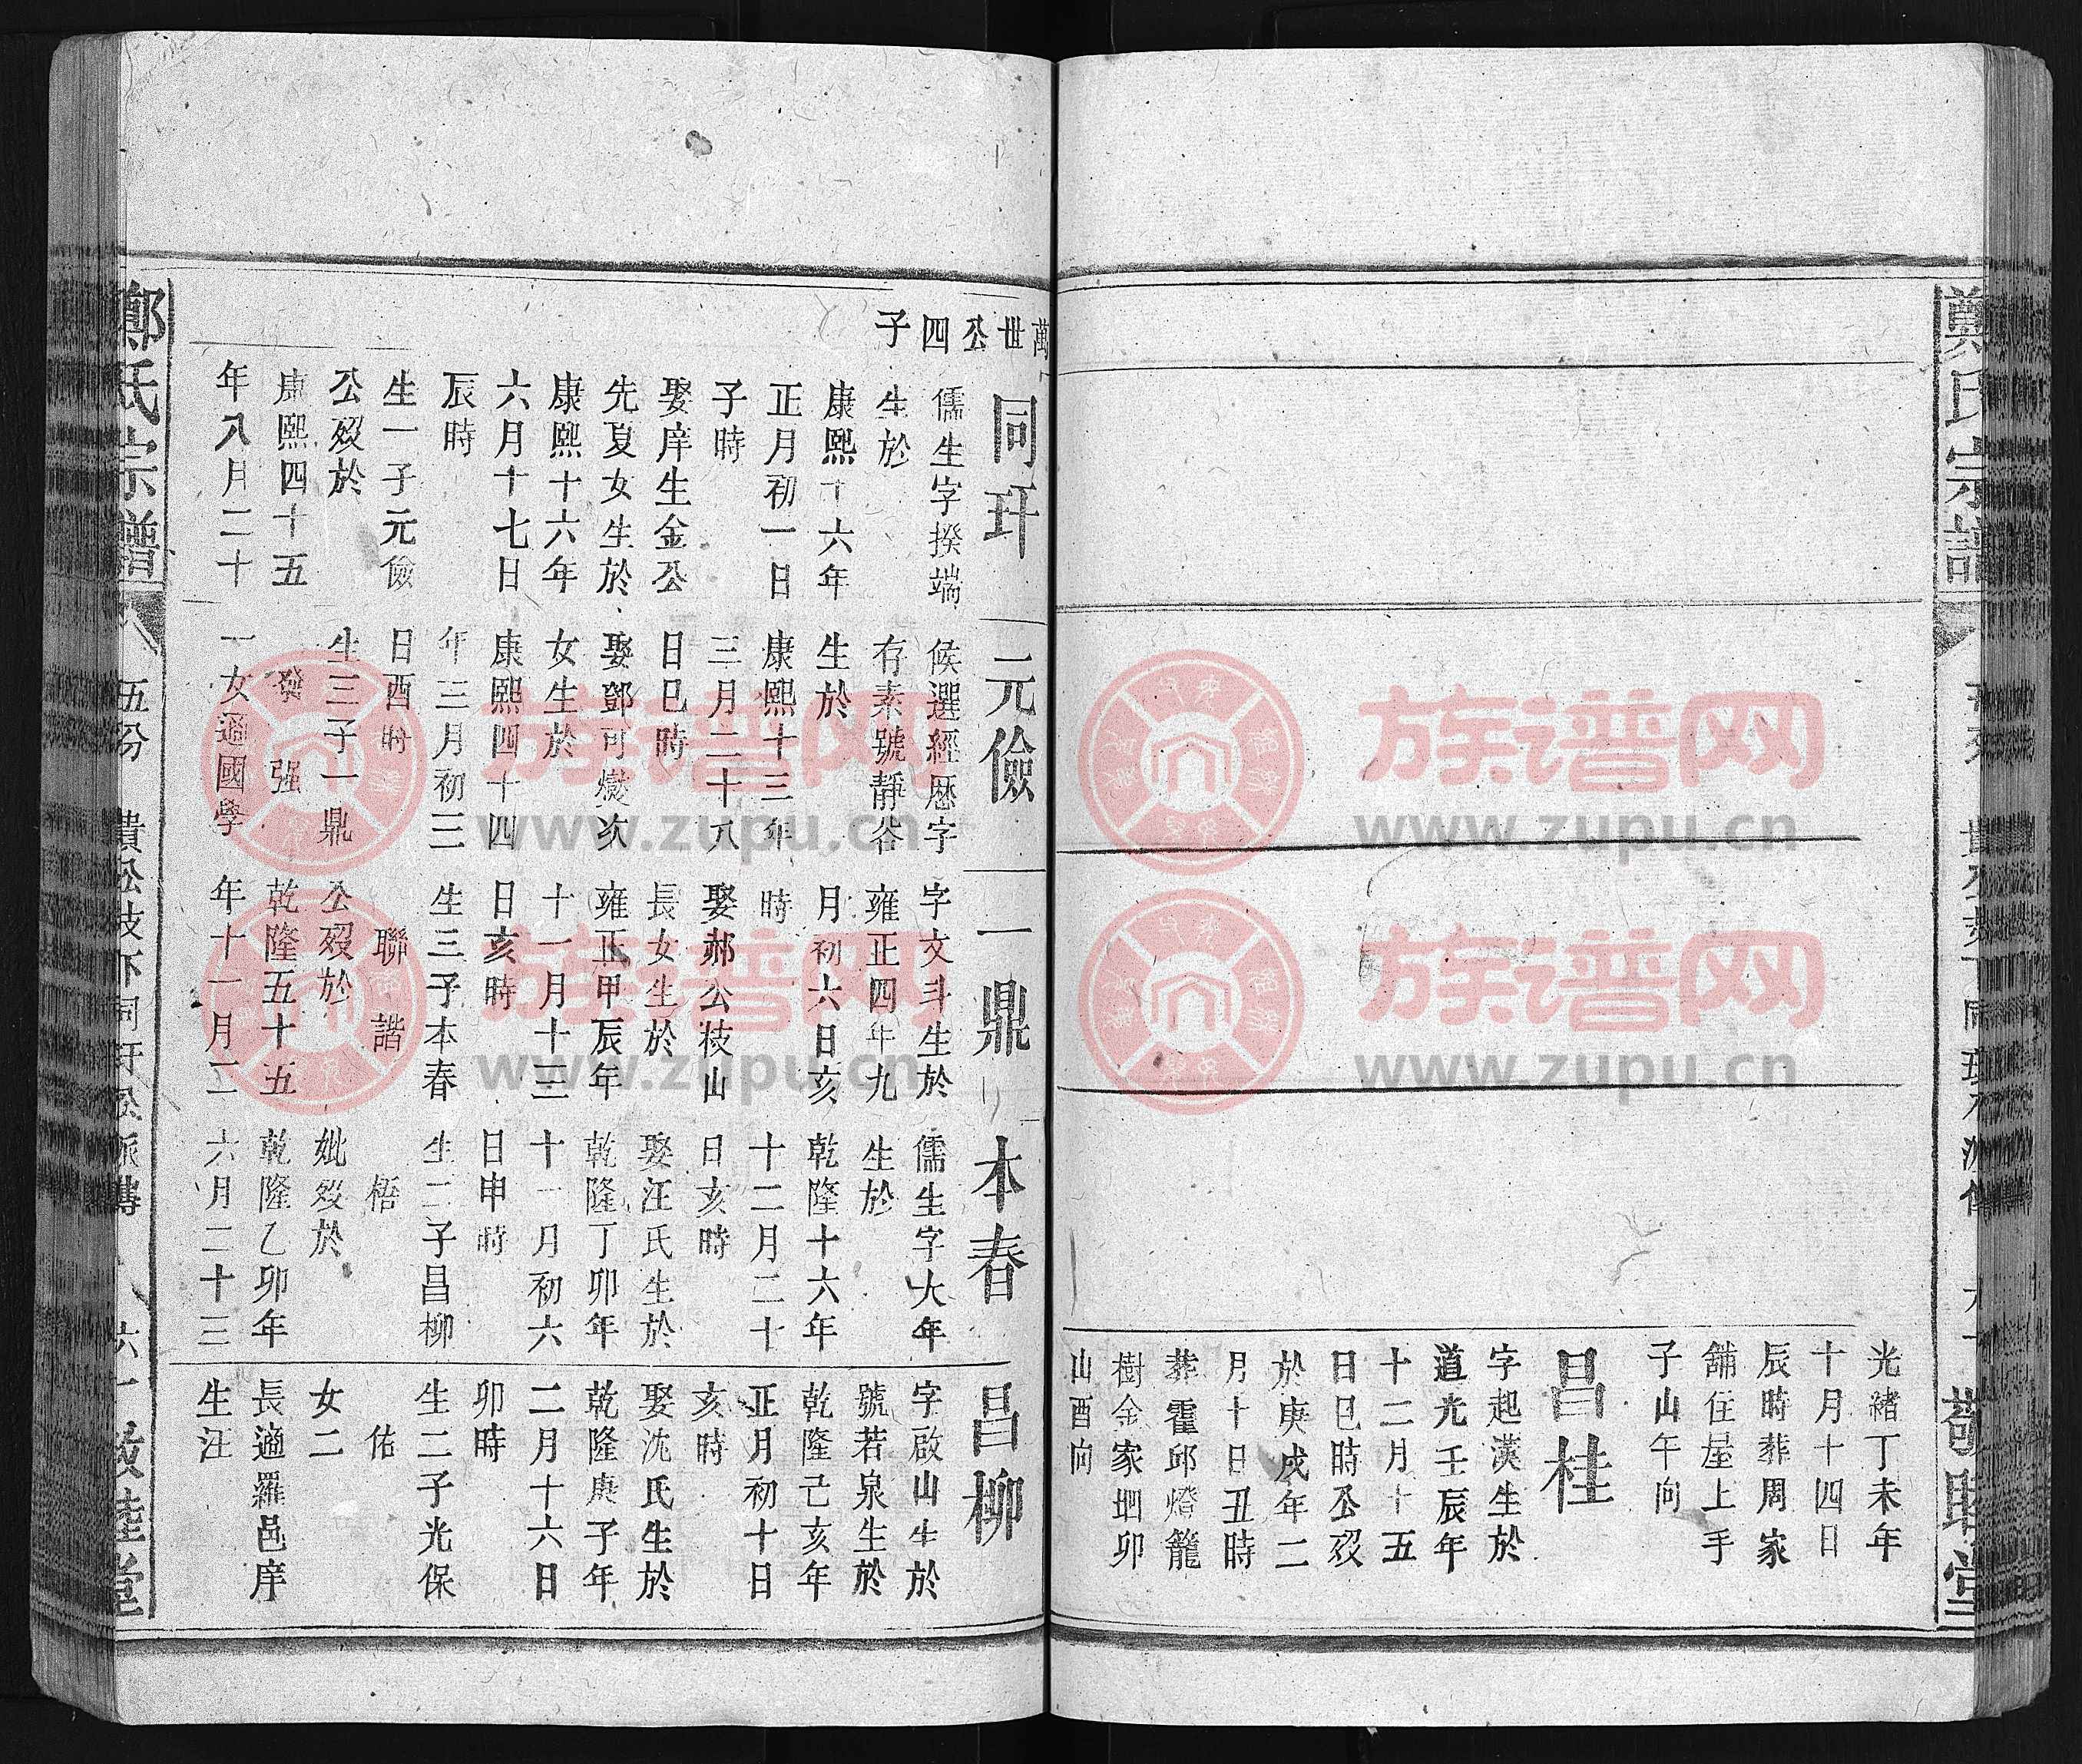 鄭氏宗譜
敬睦堂
光緒丁未年
十月十四日
辰時葬周家
舖住屋上手
子山午向
昌桂
字起漢生於
道光壬辰年
十二月十五
日巳時公歿
於庚戌年二
月十日丑時
葬霍邱燈籠
樹金家垇卯
山酉向
萬世公四子
同玕
儒生字揆端
生於
康熙十六年
正月初一日
子時
娶庠生金公
先夏女生於
康熙十六年
六月十七日
辰時
生一子元儉
公歿於
康熙四十五
年八月二十
元儉
候選經歷字
存素號靜谷
生於
康熙十三年
三月二十八
日巳時
娶鄧可爕次
女生於
康熙四十四
年三月初三
日酉時
生三子一鼎
發 强
一女適國學
一鼎
字文斗生於
雍正四年九
月初六日亥
時
娶郝公枝山
長女生於
雍正甲辰年
十一月十三
日亥時
生三子本春
聯 諧
公歿於
乾隆五十五
年十一月二
本春
儒生字大年
生於
乾隆十六年
十二月二十
日亥時
娶汪氏生於
乾隆丁卯年
十一月初六
日申時
生二子昌柳
梧
妣歿於
乾隆乙卯年
六月二十三
昌柳
字啟山生於
號若泉生於
乾隆己亥年
正月初十日
亥時
娶沈氏生於
乾隆庚子年
二月十六日
卯時
生二子光保
佑
女二
長適羅邑庠
生汪
鄭氏宗譜
八 五分 貴松枝下同玕公派傳 六一 敬睦堂
族谱网
www.zupu.cn
族谱网
www.zupu.cn
族谱网
www.zupu.cn
族谱网
www.zupu.cn